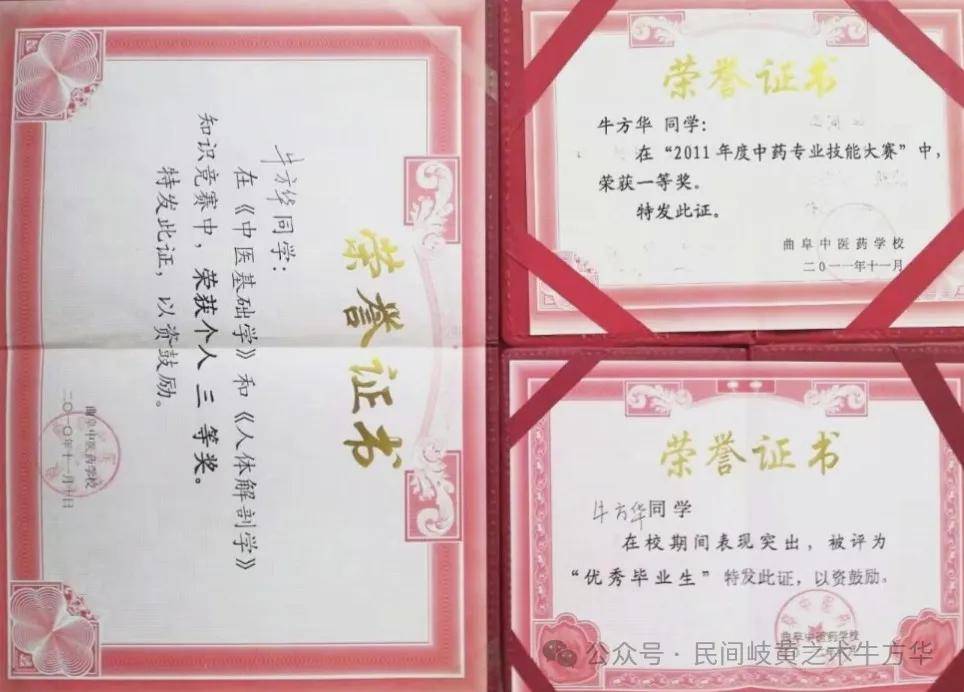 荣誉证书
牛方华同学：
在《中医基础学》和《人体解剖学》
知识竞赛中，荣获个人 三 等奖。
特发此证，以资鼓励。
曲阜中医药学校
二〇一〇年十一月十日
荣誉证书
牛方华 同学：
在“2011年度中药专业技能大赛”中，
荣获一等奖。
特发此证。
曲阜中医药学校
二〇一一年十一月
荣誉证书
牛方华同学
在校期间表现突出，被评为
“优秀毕业生”特发此证，以资鼓励。
曲阜中医药学校
公众号·民间岐黄之术牛方华